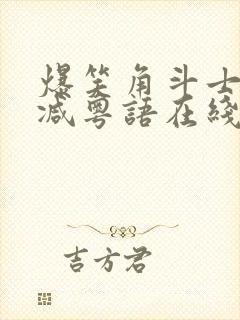 爆笑角斗士
减粤語在綫
吉方君